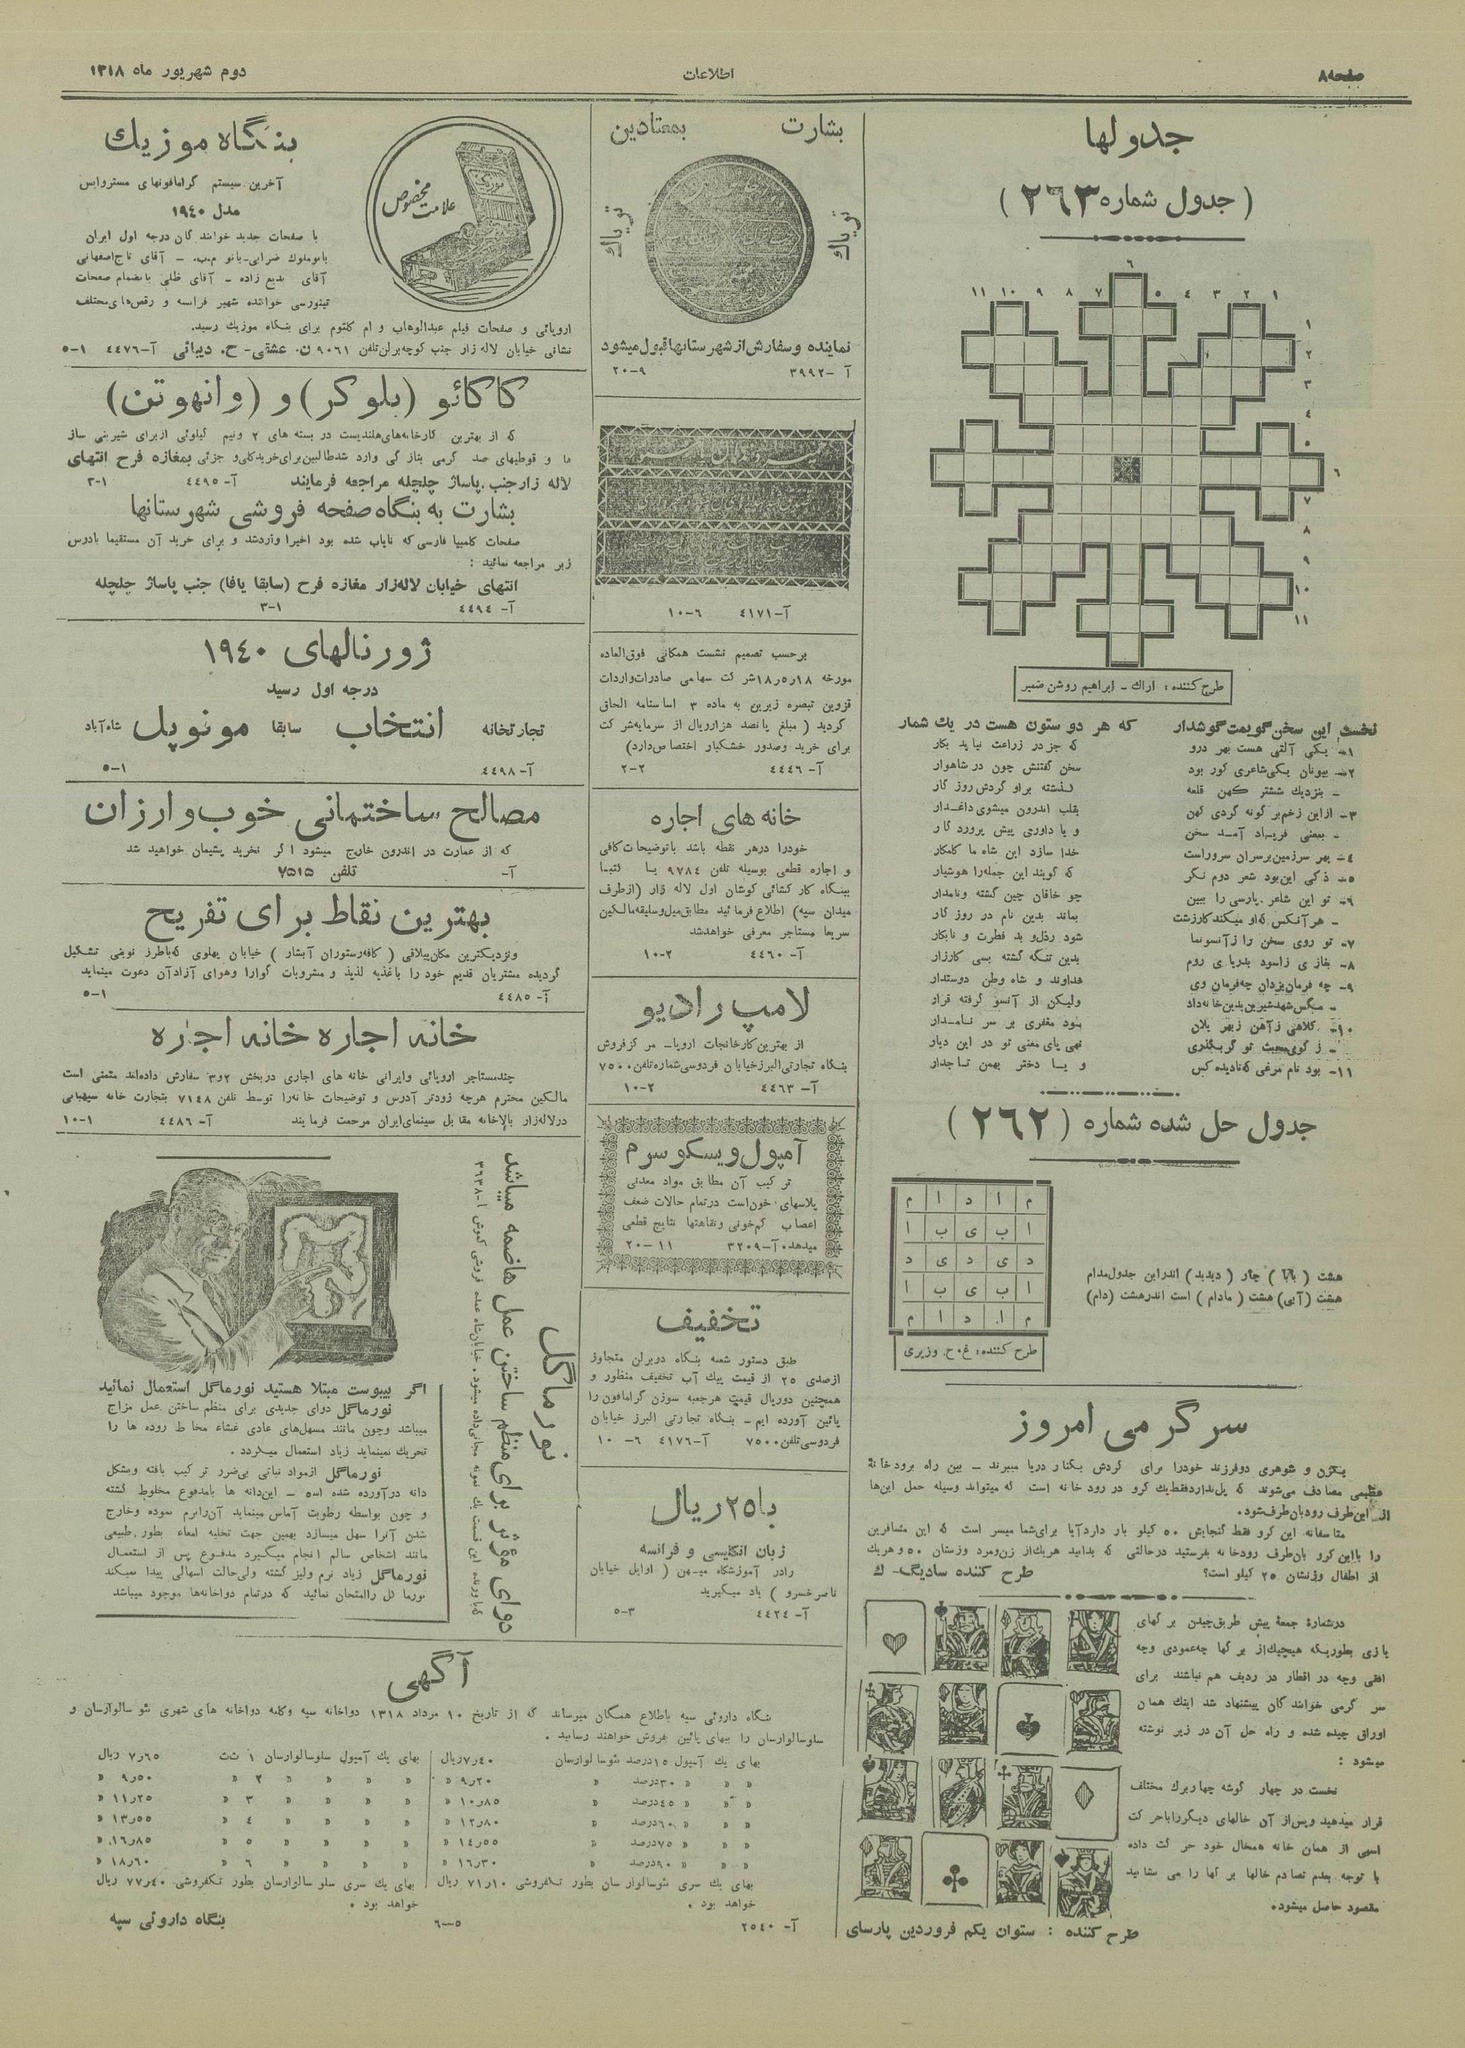 صفحه ۸
اطلاعات
دوم شهریور ماه ۱۳۱۸
جدولها
(جدول شماره ۲۶۳)
۱ ۲ ۳ ۴ ۵ ۶ ۷ ۸ ۹ ۱۰ ۱۱
۱
۲
۳
۴
۵
۶
۷
۸
۹
۱۰
۱۱
طرح کننده : اراك - ابراهیم روشن ضمیر
نخست این سخن گویمت گوشدار که هر دو ستون هست در یك شمار
۱- یکی آلتی هست بهر درو که جز در زراعت نیاید بکار
۲- بیونان یکی شاعری کور بود سخن گفتنش چون در شاهوار
- بنزدیك ششتر کهن قلعه گذشته براو گردش روز گار
۳- ازاین زخم بر گونه گردی کهن بقلب اندرون میشوی داغدار
- بمعنی فریاد آمد سخن و یا داوری پیش پرورد گار
۴- بهر سرزمین برسران سروراست خدا سازد این شاه ما کامکار
۵- ذکی این بود شعر دوم نگر که گویند این جمله را هوشیار
۶- تو این شاعر پارسی را ببین چو خاقان چین گشته ونامدار
- هر آنکس که او میکند کارزشت بماند بدین نام در روز گار
۷- تو روی سخن را ز آنسونما شود رذل و بد فطرت و نابکار
۸- بغازی ز اسود بدریای روم بدین تنگه گشته بسی کارزار
۹- چه فرمان یزدان چه فرمان وی هداوند و شاه وطن دوستدار
- مگس شهدشیرین بدین خانه داد ولیکن از آنسو گرفته قرار
۱۰- کلاهی ز آهن ز بهر یلان بود مغفری بر سر نامدار
- ز گوی محبت تو گر بگذری نهی پای معنی تو در این دیار
۱۱- بود نام مرغی که نادیده کس و یا دختر بهمن تاجدار
جدول حل شده شماره (۲۶۲)
م ا د ا م
ا ب ی ب ا
د ی د ی د
ا ب ی ب ا
م ا د ا م
طرح کننده : غ. ح. وزیری
هشت (بابا) چار (دیدید) اندراین جدول مدام
هشت (آبی) هشت (مادام) است اندر هشت (دام)
سرگرمی امروز
یکزن و شوهری دوفرزند خودرا برای گردش بکنار دریا میبرند - بین راه برودخانهٔ
عظیمی مصادف می‌شوند که پل ندارد فقط یك کرو در رود خانه است که میتواند وسیله حمل این‌ها
از این طرف رود بان طرف شود.
متاسفانه این کرو فقط گنجایش ۵۰ کیلو بار دارد آیا برای شما میسر است که این مسافرین
را با این کرو بان طرف رودخانه بفرستید درحالتی که بدانید هریك از زن و مرد وزنشان ۵۰ و هریك
از اطفال وزنشان ۲۵ کیلو است؟ طرح کننده سادینگ - ك
درشمارهٔ جمعهٔ پیش طریق چیدن برگهای
بازی بطوریکه هیچیك از برگها چه عمودی وچه
افقی وچه در اقطار در ردیف هم نباشند برای
سر گرمی خوانند گان پیشنهاد شد اینك همان
اوراق چیده شده و راه حل آن در زیر نوشته
میشود :
نخست در چهار گوشه چهار برك مختلف
قرار میدهید وپس از آن خالهای دیگر را باحر کت
اسبی از همان خانه همخال خود حر کت داده
با توجه بعدم تصادم خالها بر گها را می ستانید
مقصود حاصل میشود.
طرح کننده : ستوان یکم فروردین پارسای
بشارت بمعتادین
تریاك
تریاك
نماینده و سفارش از شهرستانها قبول میشود
آ - ۳۹۹۲ ۹-۲۰
آ- ۴۱۷۱ ۶-۱۰
برحسب تصمیم نشست همگانی فوق العاده
مورخه ۱۸ر۵ر۱۸ شر کت سهامی صادرات واردات
قزوین تبصره زیرین به ماده ۳ اساسنامه الحاق
گردید (مبلغ پانصد هزارریال از سرمایه شر کت
برای خرید وصدور خشکبار اختصاص دارد)
آ- ۴۴۴۶ ۲-۲
خانه های اجاره
خودرا درهر نقطه باشد باتوضیحات کافی
و اجاره قطعی بوسیله تلفن ۹۷۸۴ یا کتبا
ببنگاه کار کشائی کوشان اول لاله زار (ازطرف
میدان سپه) اطلاع فرمائید مطابق میل وسلیقه مالکین
سریعا مستاجر معرفی خواهدشد
آ- ۴۴۶۰ ۲-۱۰
لامپ رادیو
از بهترین کارخانجات اروپا - مر کزفروش
بنگاه تجارتی البرز خیابان فردوسی شماره تلفن ۷۵۰۰
آ- ۴۴۶۳ ۲-۱۰
آمپول ویسکو سرم
تر کیب آن مطابق مواد معدنی
پلاسهای خون است درتمام حالات ضعف
اعصاب کم خونی ونقاهتها نتایج قطعی
میدهد. آ- ۳۲۰۹ ۱۱-۲۰
تخفیف
طبق دستور شعبه بنگاه دربرلن متجاوز
ازصدی ۲۵ از قیمت پیك آب تخفیف منظور و
همچنین دوریال قیمت هرجعبه سوزن گرامافون را
پائین آورده ایم - بنگاه تجارتی البرز خیابان
فردوسی تلفن ۷۵۰۰ آ- ۴۱۷۶ ۶-۱۰
با ۲۵ ریال
زبان انگلیسی و فرانسه
رادر آموزشگاه میهن (اوایل خیابان
ناصر خسرو) یاد میگیرید
آ- ۴۴۲۴ ۳-۵
بنگاه موزیك
علامت مخصوص
موزیك
آخرین سیستم گرامافونهای مستروایس
مدل ۱۹۴۰
با صفحات جدید خوانند گان درجه اول ایران
بانوملوك ضرابی - بانو م.ب. - آقای تاج اصفهانی
آقای بدیع زاده - آقای ظلی بانضمام صفحات
تینورسی خواننده شهیر فرانسه و رقص های مختلف
اروپائی و صفحات فیلم عبدالوهاب و ام کلثوم برای بنگاه موزیك رسید.
نشانی خیابان لاله زار جنب کوچه برلن تلفن ۹۰۶۱ ن. عشقی - ح. دیبائی آ- ۴۴۷۶ ۱-۵
کاکائو (بلوکر) و (وانهوتن)
که از بهترین کارخانه های هلندیست در بسته های ۲ ونیم کیلوئی ازبرای شیرینی ساز
ها و قوطیهای صد گرمی بتاز گی وارد شد طالبین برای خرید کلی و جزئی بمغازه فرح انتهای
لاله زار جنب پاساژ چلچله مراجعه فرمایند آ- ۴۴۹۵ ۱-۲
بشارت به بنگاه صفحه فروشی شهرستانها
صفحات کلمبیا فارسی که نایاب شده بود اخیرا واردشد و برای خرید آن مستقیما بادرس
زیر مراجعه نمائید :
انتهای خیابان لاله زار مغازه فرح (سابقا یافا) جنب پاساژ چلچله
آ- ۴۴۹۴ ۱-۳
ژورنالهای ۱۹۴۰
درجه اول رسید
تجارتخانه انتخاب سابقا مونوپل شاه آباد
آ- ۴۴۹۸ ۱-۵
مصالح ساختمانی خوب و ارزان
که از عمارت در اندرون خارج میشود اگر نخرید پشیمان خواهید شد
آ- تلفن ۷۵۱۵
بهترین نقاط برای تفریح
ونزدیکترین مکان ییلاقی (کافه رستوران آبشار) خیابان پهلوی که باطرز نوینی تشکیل
گردیده مشتریان قدیم خود را باغذیه لذیذ و مشروبات گوارا وهوای آزاد آن دعوت مینماید
آ- ۴۴۸۵ ۱-۵
خانه اجاره خانه اجاره
چندمستاجر اروپائی وایرانی خانه های اجاری دربخش ۲و۳ سفارش داده اند متمنی است
مالکین محترم هرچه زودتر آدرس و توضیحات خانه را توسط تلفن ۷۱۴۸ بتجارت خانه سیهبانی
درلاله زار بالاخانه مقابل سینمای ایران مرحمت فرمایند آ- ۴۴۸۶ ۱-۱۰
نورماگل
دوای موثر برای منظم ساختن عمل هاضمه میباشد
آ- ۳۶۳۸
اگر بیبوست مبتلا هستید نورماگل استعمال نمائید
نورماگل دوای جدیدی برای منظم ساختن عمل مزاج
میباشد وچون مانند مسهل های عادی غشاء مخاط روده ها را
تحریك نمینماید زیاد استعمال میگردد .
نورماگل ازمواد نباتی بی ضرر تر کیب یافته وبشکل
دانه در آورده شده است - این دانه ها بامدفوع مخلوط گشته
و چون بواسطه رطوبت آماس مینماید آن رانرم نموده وخارج
شدن آنرا سهل میسازد بهمین جهت تخلیه امعاء بطور طبیعی
مانند اشخاص سالم انجام میگیرد مدفوع پس از استعمال
نورماگل زیاد نرم ولیز گشته ولی حالت اسهالی پیدا نمیکند
نورماگل راامتحان نمائید که درتمام دواخانه ها موجود میباشد
آگهی
بنگاه داروئی سپه باطلاع همگان میرساند که از تاریخ ۱۰ مرداد ۱۳۱۸ دواخانه سپه وکلیه دواخانه های شهری نئو سالوارسان و
سلوسالوارسان را ببهای پائین بفروش خواهند رسانید .
بهای یك آمپول ۱۵ درصد نئوسالوارسان ۷ر۴۰ ریال
» » » ۳۰ درصد » ۹ر۲۰ »
» » » ۴۵ درصد » ۱۰ر۸۵ »
» » » ۶۰ درصد » ۱۲ر۸۰ »
» » » ۷۵ درصد » ۱۴ر۵۵ »
» » » ۹۰ درصد » ۱۶ر۳۰ »
بهای یك سری نئوسالوارسان بطور تکفروشی ۷۱ر۱۰ ریال
خواهد بود .
بهای یك آمپول سلوسالوارسان ۱ ثث ۷ر۶۵ ریال
» » » » ۲ » ۹ر۵۰ »
» » » » ۳ » ۱۱ر۲۵ »
» » » » ۴ » ۱۳ر۵۵ »
» » » » ۵ » ۱۶ر۸۵ »
» » » » ۶ » ۱۸ر۶۰ »
بهای یك سری سلوسالوارسان بطور تکفروشی ۷۷ر۴۰ ریال
خواهد بود .
آ- ۲۵۴۰ ۵-۶ بنگاه داروئی سپه